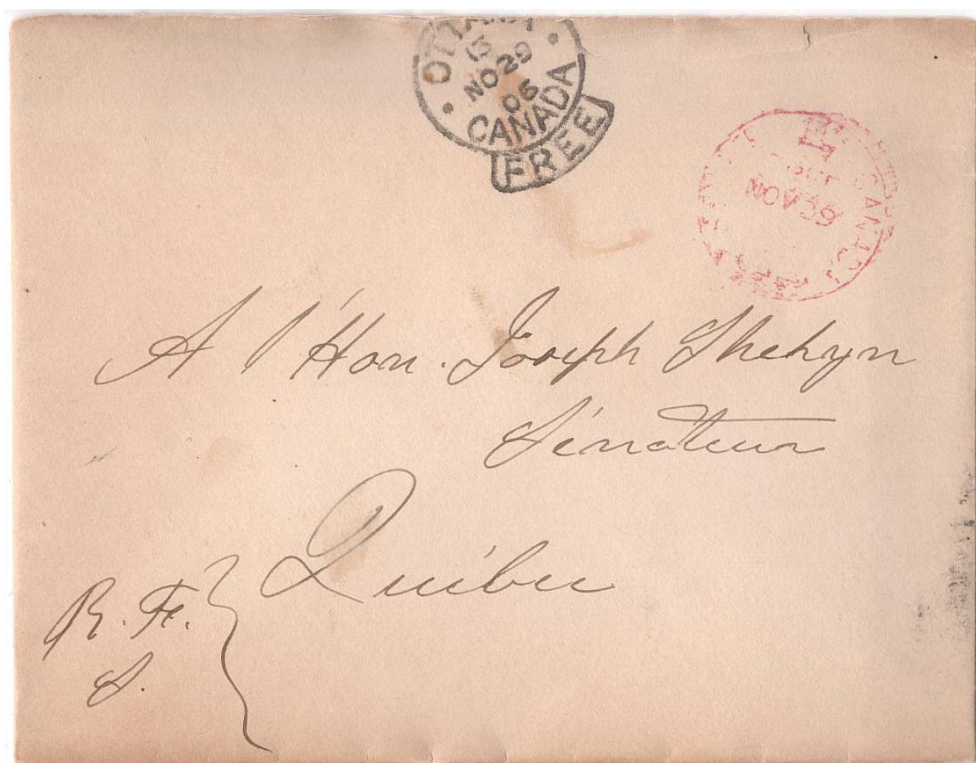 OTTAWA
13
NO 29
06
CANADA
FREE
CANADA
NOV 29
A l'Hon. Joseph Shehyn
Sénateur
Québec
R. F.
S.